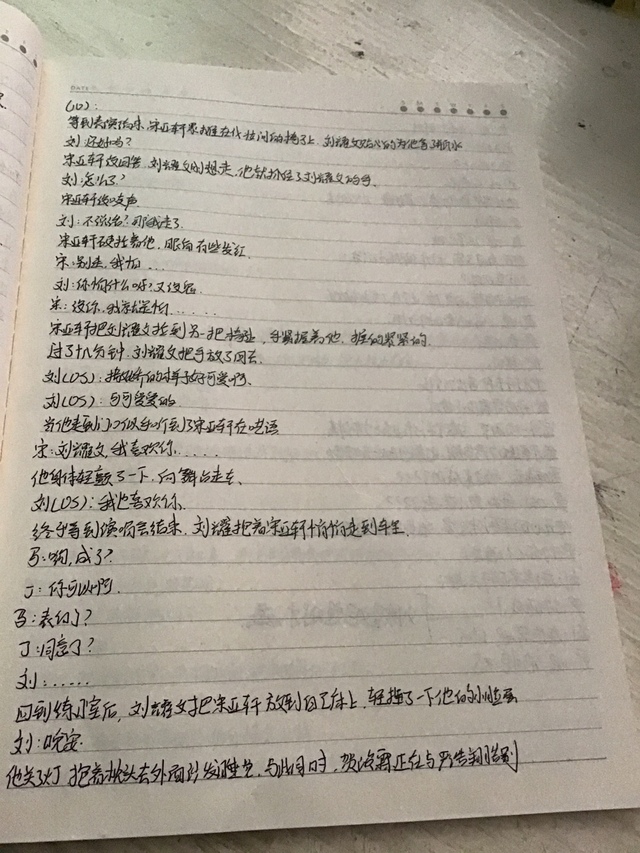 DATE
(10):
等到表演结束,宋亚轩累瘫在化妆间的椅子上,刘耀文贴心的为他拿了瓶水
刘:还好吗?
宋亚轩没回答,刘耀文刚想走,他就抓住了刘耀文的手
刘:怎么了?
宋亚轩没吱声
刘:不说话?那我走了
宋亚轩死拉着他,眼角有些发红
宋:别走,我怕....
刘:你怕什么呀?又没鬼
宋:没你,我就是怕......
宋亚轩把刘耀文拉到另一把椅子,手紧握着他,握的紧紧的
过了十几分钟,刘耀文把手放了回去
刘(OS):撒娇的样子好可爱啊
刘(OS):可可爱爱的
当他走到门口似乎听到了宋亚轩在呓语
宋:刘耀文,我喜欢你......
他身体轻颤了一下,向舞台走去
刘(OS):我也喜欢你
终于等到演唱会结束,刘耀抱着宋亚轩悄悄走到车里
马:哟,成了?
丁:你可以啊
马:表白了?
丁:同意了?
刘:......
回到练习室后,刘耀文把宋亚轩放到自己床上,轻捶了一下他的小脸蛋
刘:晚安
他关了灯 抱着枕头去外面沙发睡觉,与此同时,贺峻霖正在与严浩翔告别